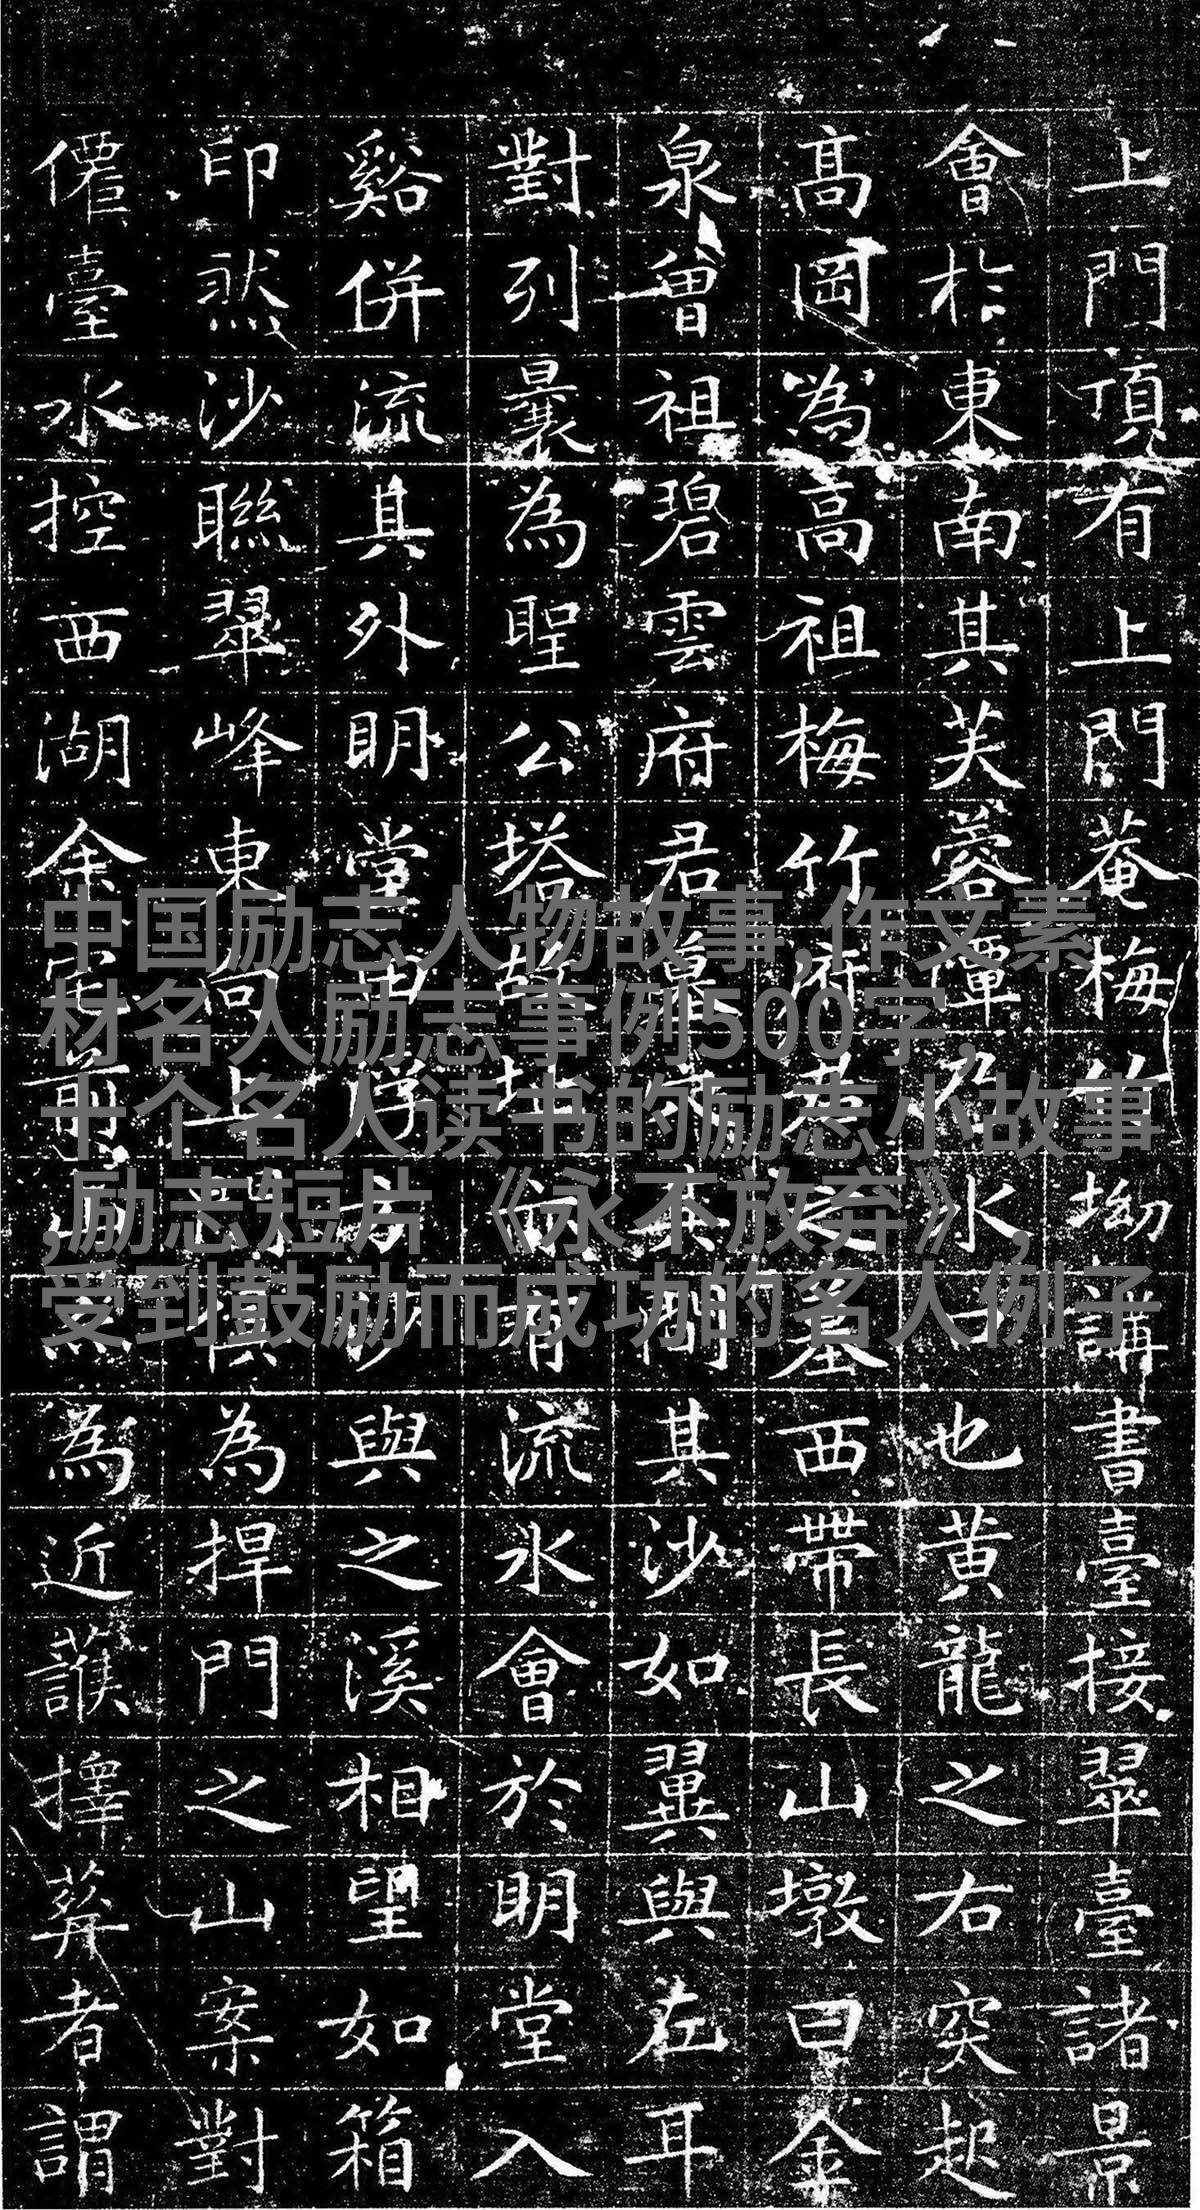 上門頂有上門菴梅竹坳講書臺接翠臺諸景
會於東南其芙蓉潭乃水口也黃龍之右突起
高岡為高祖梅竹府君之墓西帶長山墩曰金
泉曾祖碧雲府君墓亦間其沙如翼與左耳
對列曩為聖公塔故址有流水會於明堂入
谿併流其外明堂中浮方沙與之溪相望如箱
印然沙聯翠峰東向上為捍門之山案對
僊臺水控西湖余宅前山為近護擇葬者謂
中国励志人物故事,作文素
材名人励志事例500字,
十个名人读书的励志小故事
,励志短片《永不放弃》,
受到鼓励而成功的名人例子